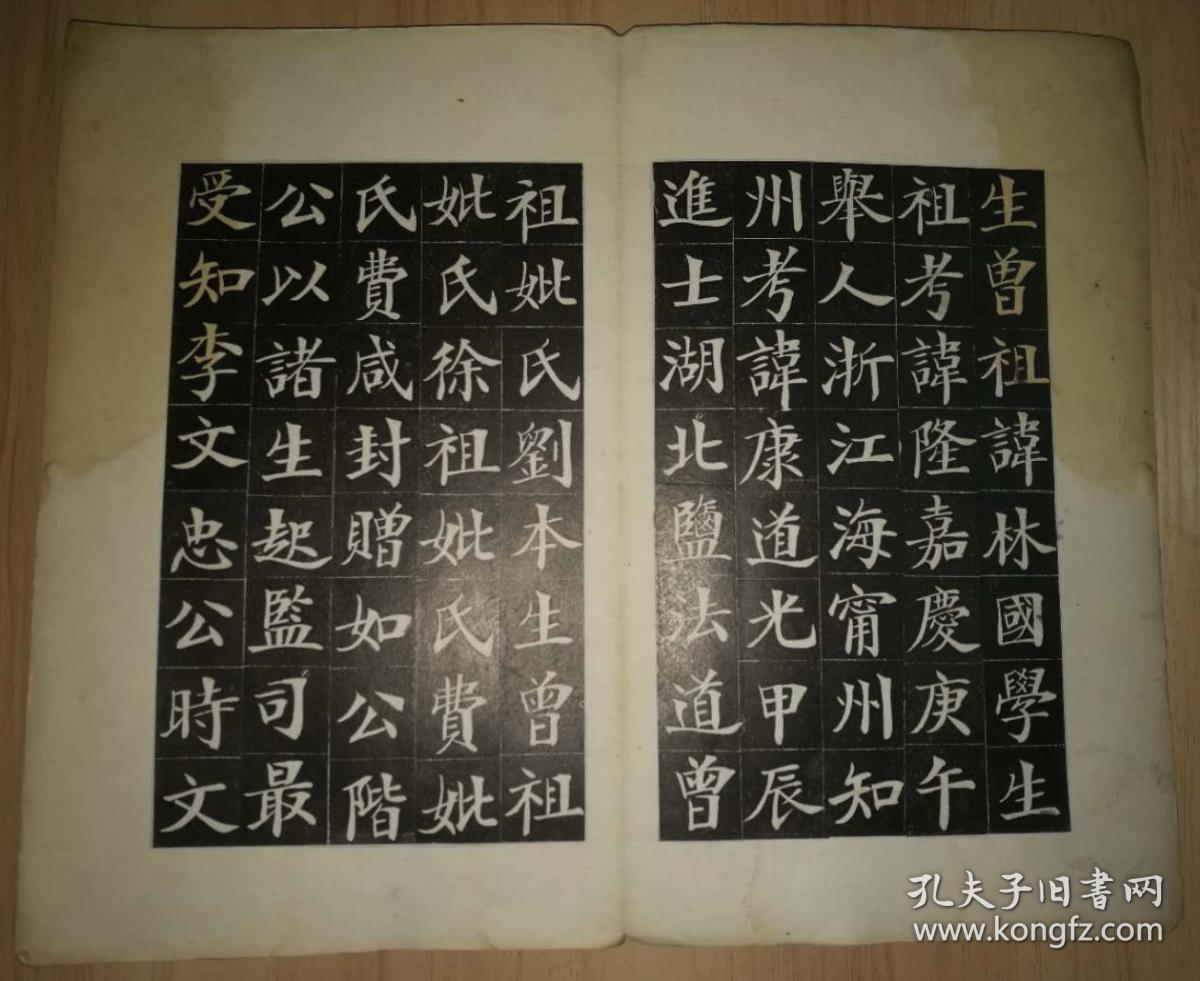 生曾祖諱林國學生
祖考諱隆嘉慶庚午
舉人浙江海甯州知
州考諱康道光甲辰
進士湖北鹽法道曾
祖妣氏劉本生曾祖
妣氏徐祖妣氏費妣
氏費咸封贈如公階
公以諸生起監司最
受知李文忠公時文
孔夫子旧书网
www.kongfz.com